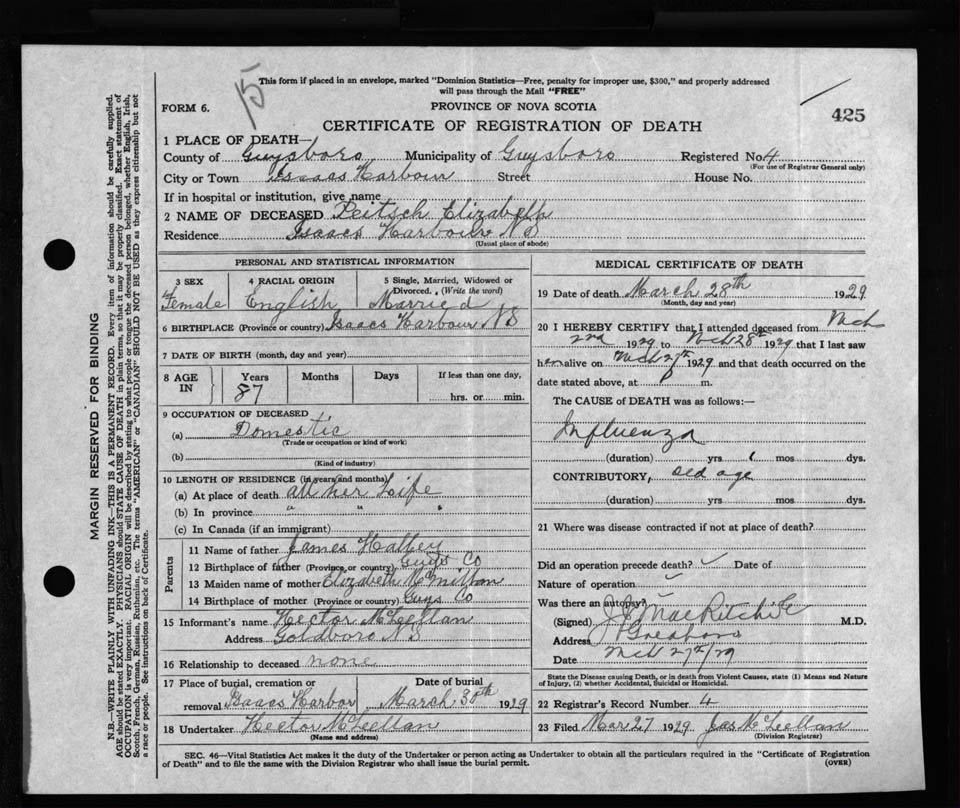 15
This form if placed in an envelope, marked "Dominion Statistics—Free, penalty for improper use, $300," and properly addressed
will pass through the Mail "FREE"
FORM 6.
PROVINCE OF NOVA SCOTIA
425
CERTIFICATE OF REGISTRATION OF DEATH
1 PLACE OF DEATH—
County of Guysboro Municipality of Guysboro Registered No. 4
(For use of Registrar General only)
City or Town Isaacs Harbour Street House No.
If in hospital or institution, give name
2 NAME OF DECEASED Deitsch Elizabeth
Residence Isaacs Harbour NS
(Usual place of abode)
PERSONAL AND STATISTICAL INFORMATION
3 SEX
Female
4 RACIAL ORIGIN
English
5 Single, Married, Widowed or
Divorced. (Write the word)
Married
6 BIRTHPLACE (Province or country) Isaacs Harbour NS
7 DATE OF BIRTH (month, day and year)
8 AGE IN
Years 87
Months
Days
If less than one day,
hrs. or min.
9 OCCUPATION OF DECEASED
(a) Domestic
(Trade or occupation or kind of work)
(b)
(Kind of industry)
10 LENGTH OF RESIDENCE (in years and months)
(a) At place of death all her Life
(b) In province " " "
(c) In Canada (if an immigrant)
Parents
11 Name of father James
12 Birthplace of father (Province or country) Guys Co
13 Maiden name of mother Elizabeth
14 Birthplace of mother (Province or country) Guys Co
15 Informant's name Hector McLellan
Address Goldboro NS
16 Relationship to deceased none
17 Place of burial, cremation or
removal Isaacs Harbor
Date of burial
March 30th 1929
18 Undertaker Hector McLellan
(Name and address)
MEDICAL CERTIFICATE OF DEATH
19 Date of death March 28th 1929
(Month, day and year)
20 I HEREBY CERTIFY that I attended deceased from Mch
2nd 1929 to Mch 28th 1929 that I last saw
her alive on Mch 27th 1929 and that death occurred on the
date stated above, at P m.
The CAUSE of DEATH was as follows:—
Influenza
(duration) yrs 1 mos dys.
CONTRIBUTORY, old age
(duration) yrs mos dys.
21 Where was disease contracted if not at place of death?
Did an operation precede death? Date of
Nature of operation
Was there an autopsy?
(Signed) MacRitchie M.D.
Address Goldboro
Date Mch 27th/29
State the Disease causing Death, or in death from Violent Causes, state (1) Means and Nature
of Injury, (2) whether Accidental, Suicidal or Homicidal.
22 Registrar's Record Number 4
23 Filed Mar 27 1929 Jas McLellan
(Division Registrar)
SEC. 46—Vital Statistics Act makes it the duty of the Undertaker or person acting as Undertaker to obtain all the particulars required in the "Certificate of Registration
of Death" and to file the same with the Division Registrar who shall issue the burial permit.
(OVER)
MARGIN RESERVED FOR BINDING
N.B.—WRITE PLAINLY WITH UNFADING INK—THIS IS A PERMANENT RECORD. Every item of information should be carefully supplied.
AGE should be stated EXACTLY. PHYSICIANS should STATE CAUSE OF DEATH in plain terms, so that it may be properly classified. Exact statement of
OCCUPATION is very important. RACIAL ORIGIN will be described by stating to what people or tongue the deceased person belonged, whether English, Irish,
Scotch, French, German, Russian, Ruthenian, etc. The terms "AMERICAN" or "CANADIAN" SHOULD NOT BE USED as they express citizenship but not
a race or people. See instructions on back of Certificate.